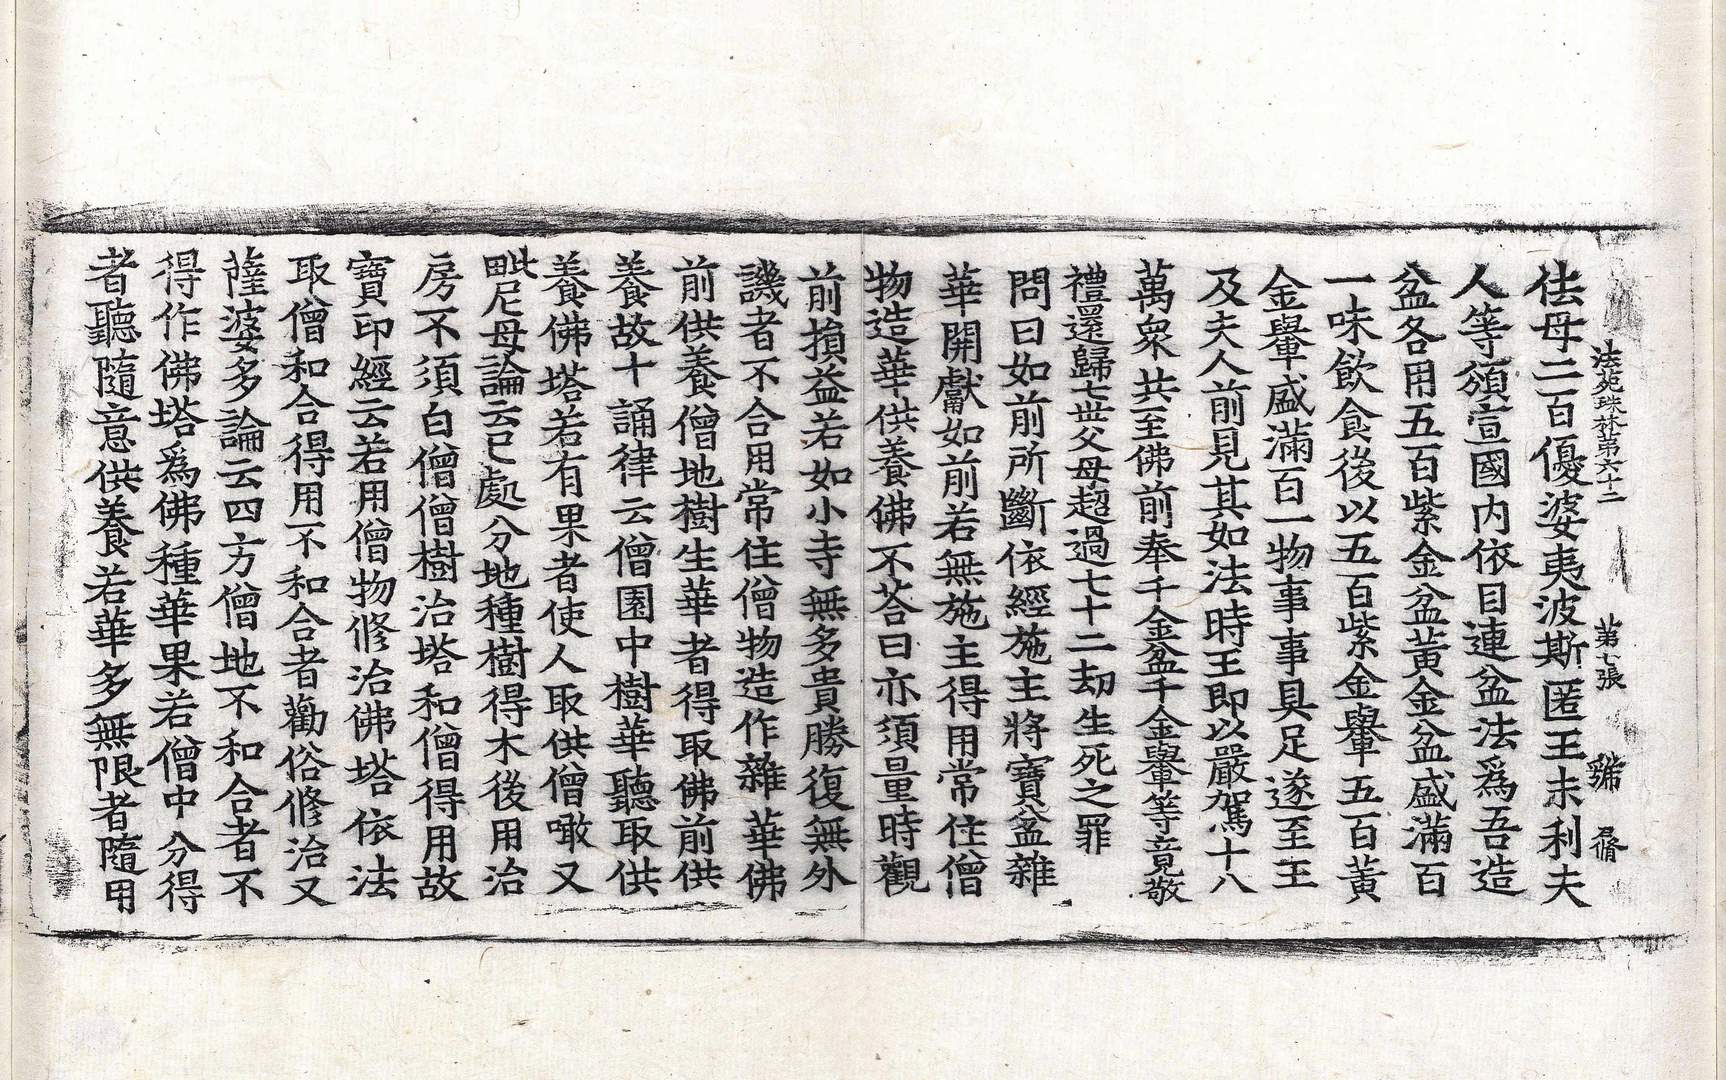 法苑珠林第六十二　第七張
佉母二百優婆夷波斯匿王末利夫
人等頒宣國內依目連盆法爲吾造
盆各用五百紫金盆黃金盆盛滿百
一味飲食後以五百紫金轝五百黃
金轝盛滿百一物事事具足遂至王
及夫人前見其如法時王即以嚴駕十八
萬衆共至佛前奉千金盆千金轝等竟敬
禮還歸七世父母超過七十二劫生死之罪
問曰如前所斷依經施主將寶盆雜
華開獻如前若無施主得用常住僧
物造華供養佛不荅曰亦須量時觀
前損益若如小寺無多貴勝復無外
譏者不合用常住僧物造作雜華佛
前供養僧地樹生華者得取佛前供
養故十誦律云僧園中樹華聽取供
養佛塔若有果者使人取供僧噉又
毗尼母論云已處分地種樹得木後用治
房不須白僧僧樹治塔和僧得用故
寶印經云若用僧物修治佛塔依法
取僧和合得用不和合者勸俗修治又
薩婆多論云四方僧地不和合者不
得作佛塔爲佛種華果若僧中分得
者聽隨意供養若華多無限者隨用